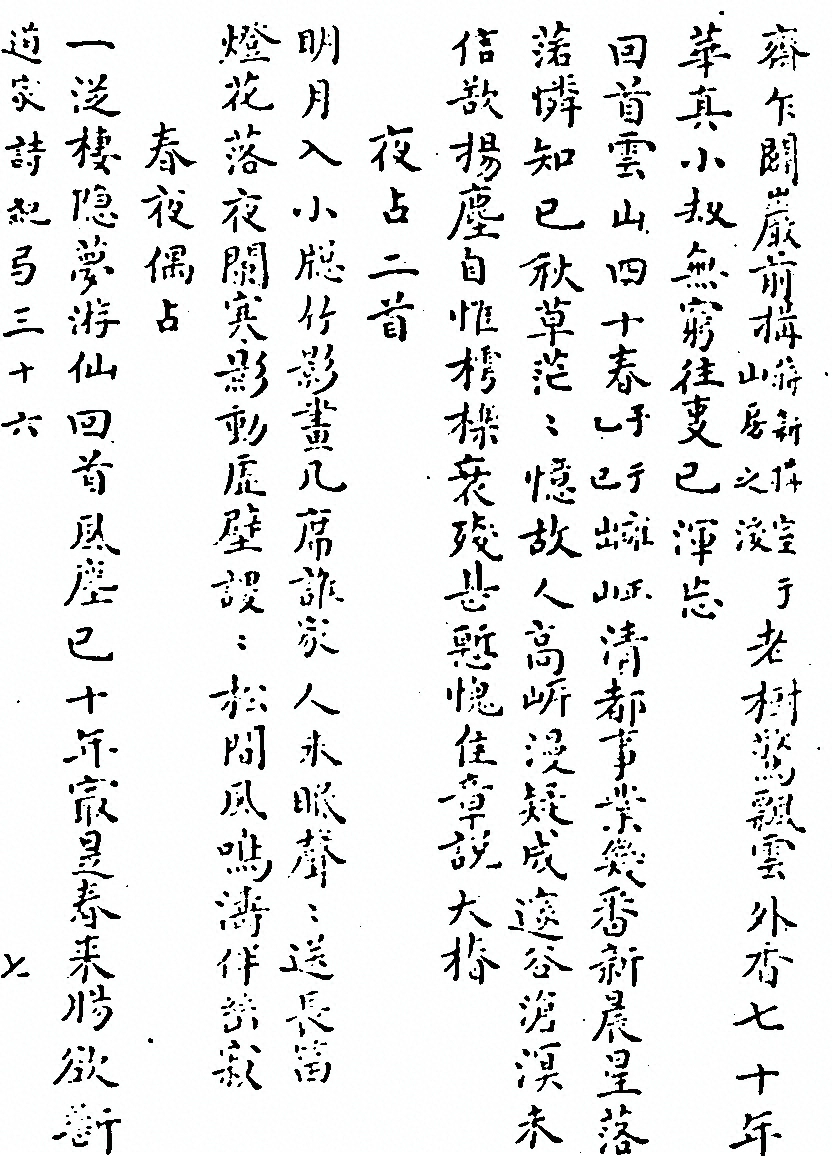 齋乍闢巖前構蔣新搆室于山房之後老樹鶯飄雲外香七十年
華真小刼無窮往事已渾忘
回首雲山四十春予于雍正乙巳出山清都事業幾番新晨星落
落憐知已秋草茫〻憶故人高岍漫疑成邃谷滄溟未
信欻揚塵自惟樗櫟衰殘甚慙愧佳章説大椿
夜占二首
明月入小牕竹影畫几席誰家人未眠聲〻送長笛
燈花落夜闌寒影動虛壁謖〻松間風鳴濤伴岑寂
春夜偶占
一從棲隱夢游仙回首風塵已十年最是春来腸欲斷
道家詩紀弓三十六 七